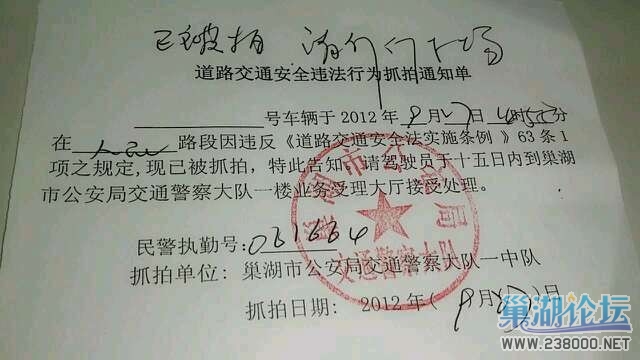 已被拍 请

道路交通安全违法行为抓拍通知单
号车辆于2012年8月27日 分
在人民路段因违反《道路交通安全法实施条例》63条1
项之规定,现已被抓拍，特此告知。请驾驶员于十五日内到巢湖
市公安局交通警察大队一楼业务受理大厅接受处理。
巢湖市公安局
交通警察大队
民警执勤号:061664
抓拍单位：巢湖市公安局交通警察大队一中队
抓拍日期：2012年(8月27)日
巢湖论坛
www.238000.net